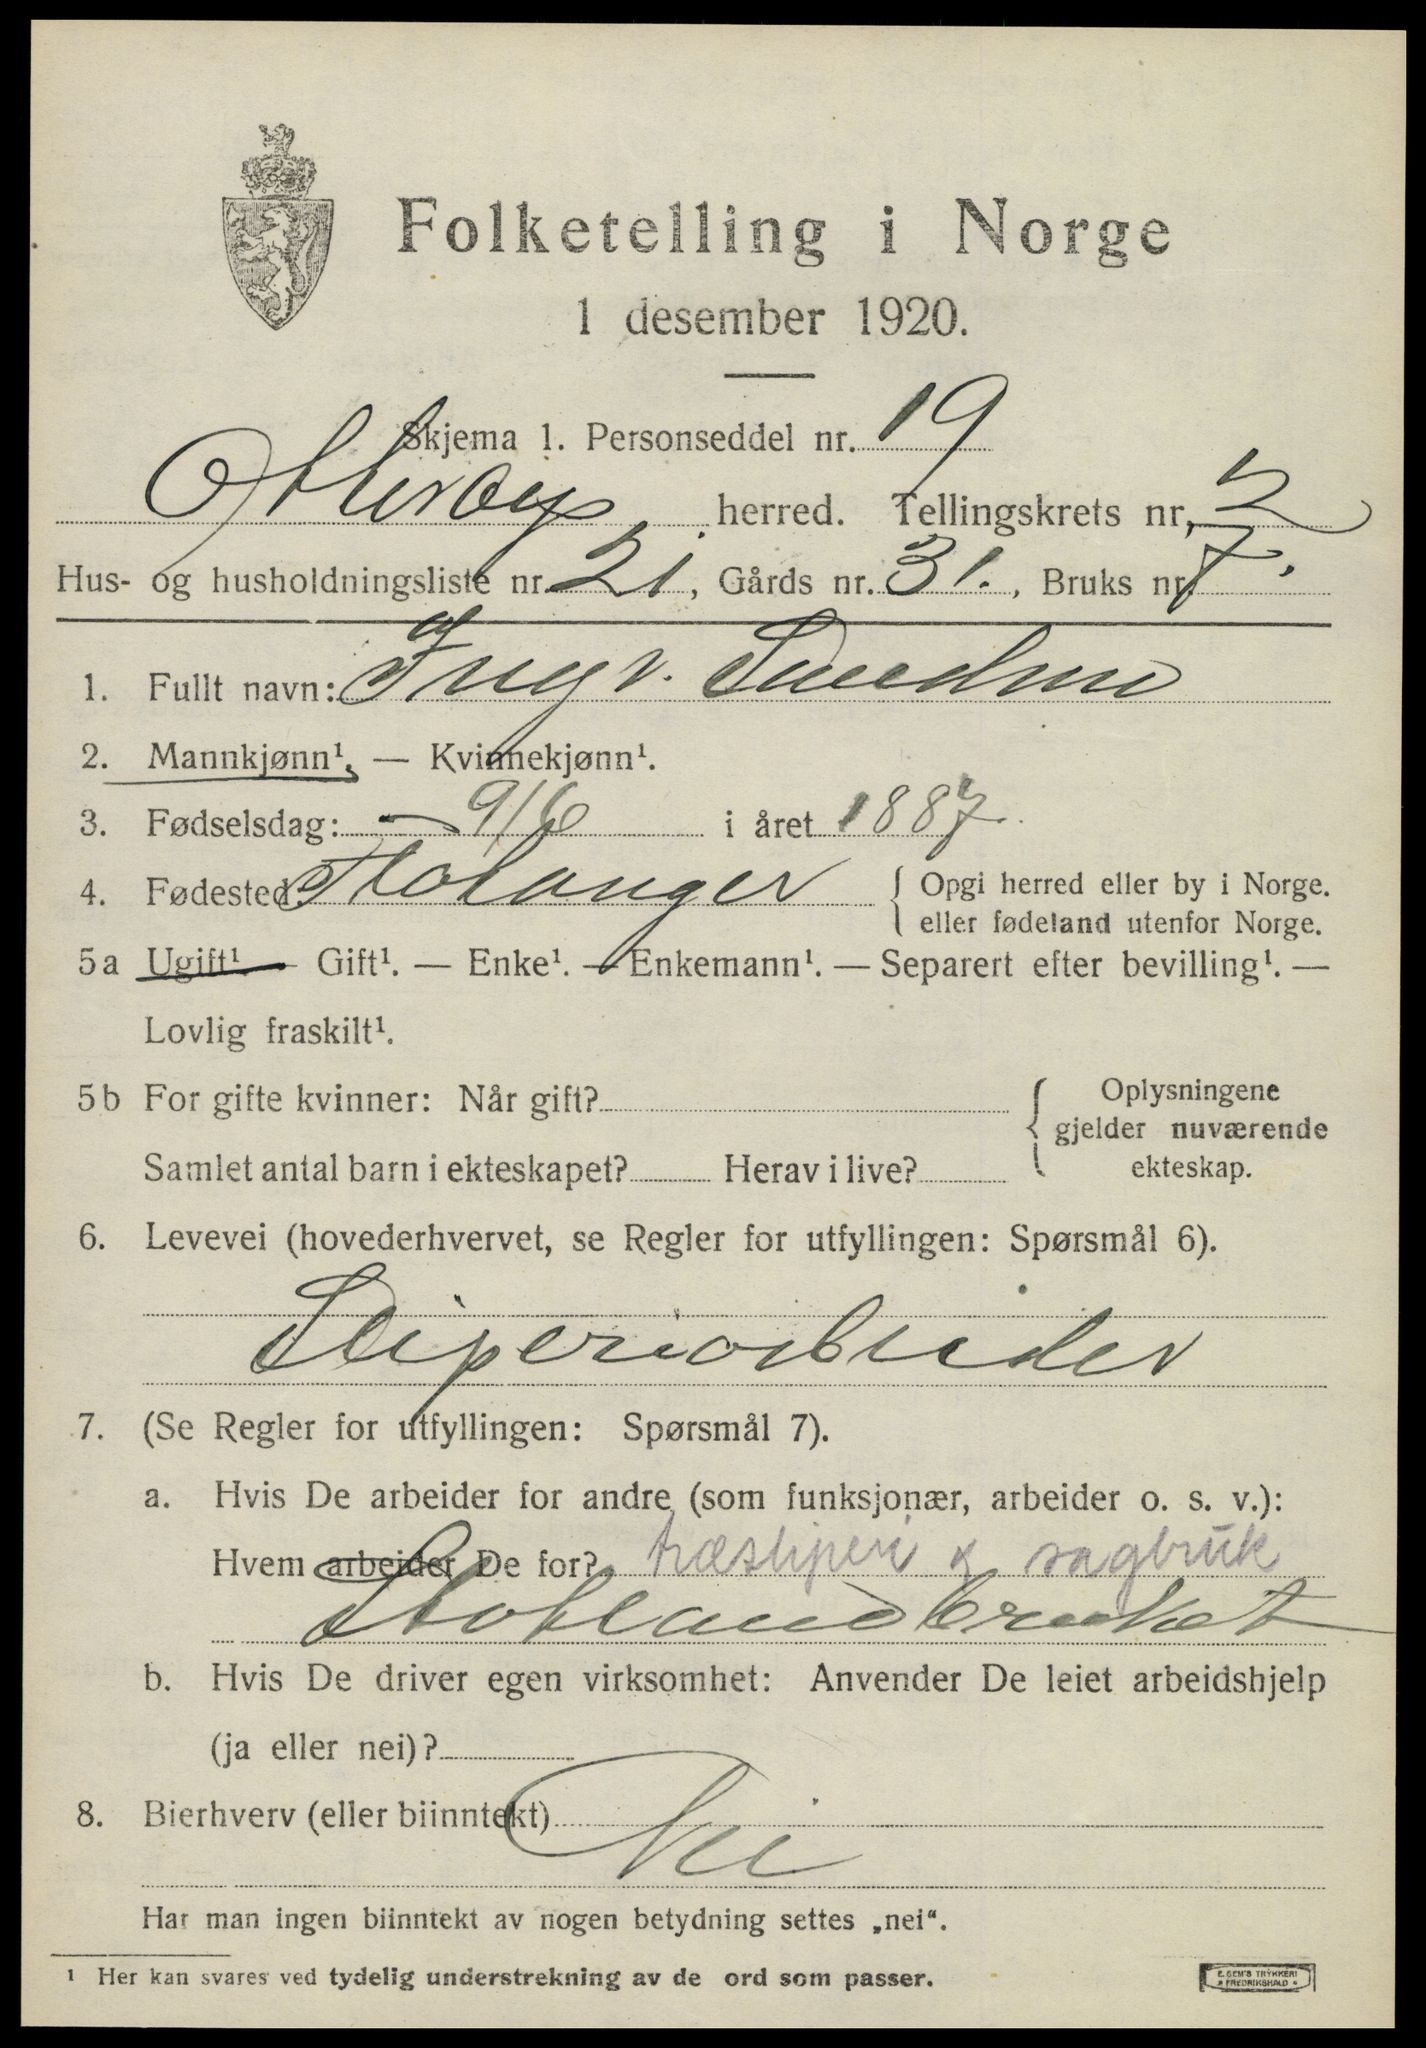 Folketelling i Norge
1 desember 1920.
Skjema 1. Personseddel nr. 19
herred. Tellingskrets nr. 2
Hus- og husholdningsliste nr. 21, Gårds nr. 31., Bruks nr. 7.
1. Fullt navn: Ingv.
2. Mannkjønn¹. — Kvinnekjønn¹.
3. Fødselsdag: 9/6 i året 1887.
4. Fødested: { Opgi herred eller by i Norge.
eller fødeland utenfor Norge.
5a Ugift¹. — Gift¹. — Enke¹. — Enkemann¹. — Separert efter bevilling¹. —
Lovlig fraskilt¹.
5b For gifte kvinner: Når gift? { Oplysningene
gjelder nuværende
Samlet antal barn i ekteskapet? Herav i live? ekteskap.
6. Levevei (hovederhvervet, se Regler for utfyllingen: Spørsmål 6).
Sliperiarbeider
7. (Se Regler for utfyllingen: Spørsmål 7).
a. Hvis De arbeider for andre (som funksjonær, arbeider o. s. v.):
Hvem arbeider De for? træsliperi & sagbruk
b. Hvis De driver egen virksomhet: Anvender De leiet arbeidshjelp
(ja eller nei)?
8. Bierhverv (eller biinntekt) Nei
Har man ingen biinntekt av nogen betydning settes „nei“.
¹ Her kan svares ved tydelig understrekning av de ord som passer.
E. SEM'S TRYKKERI
FREDRIKSHALD